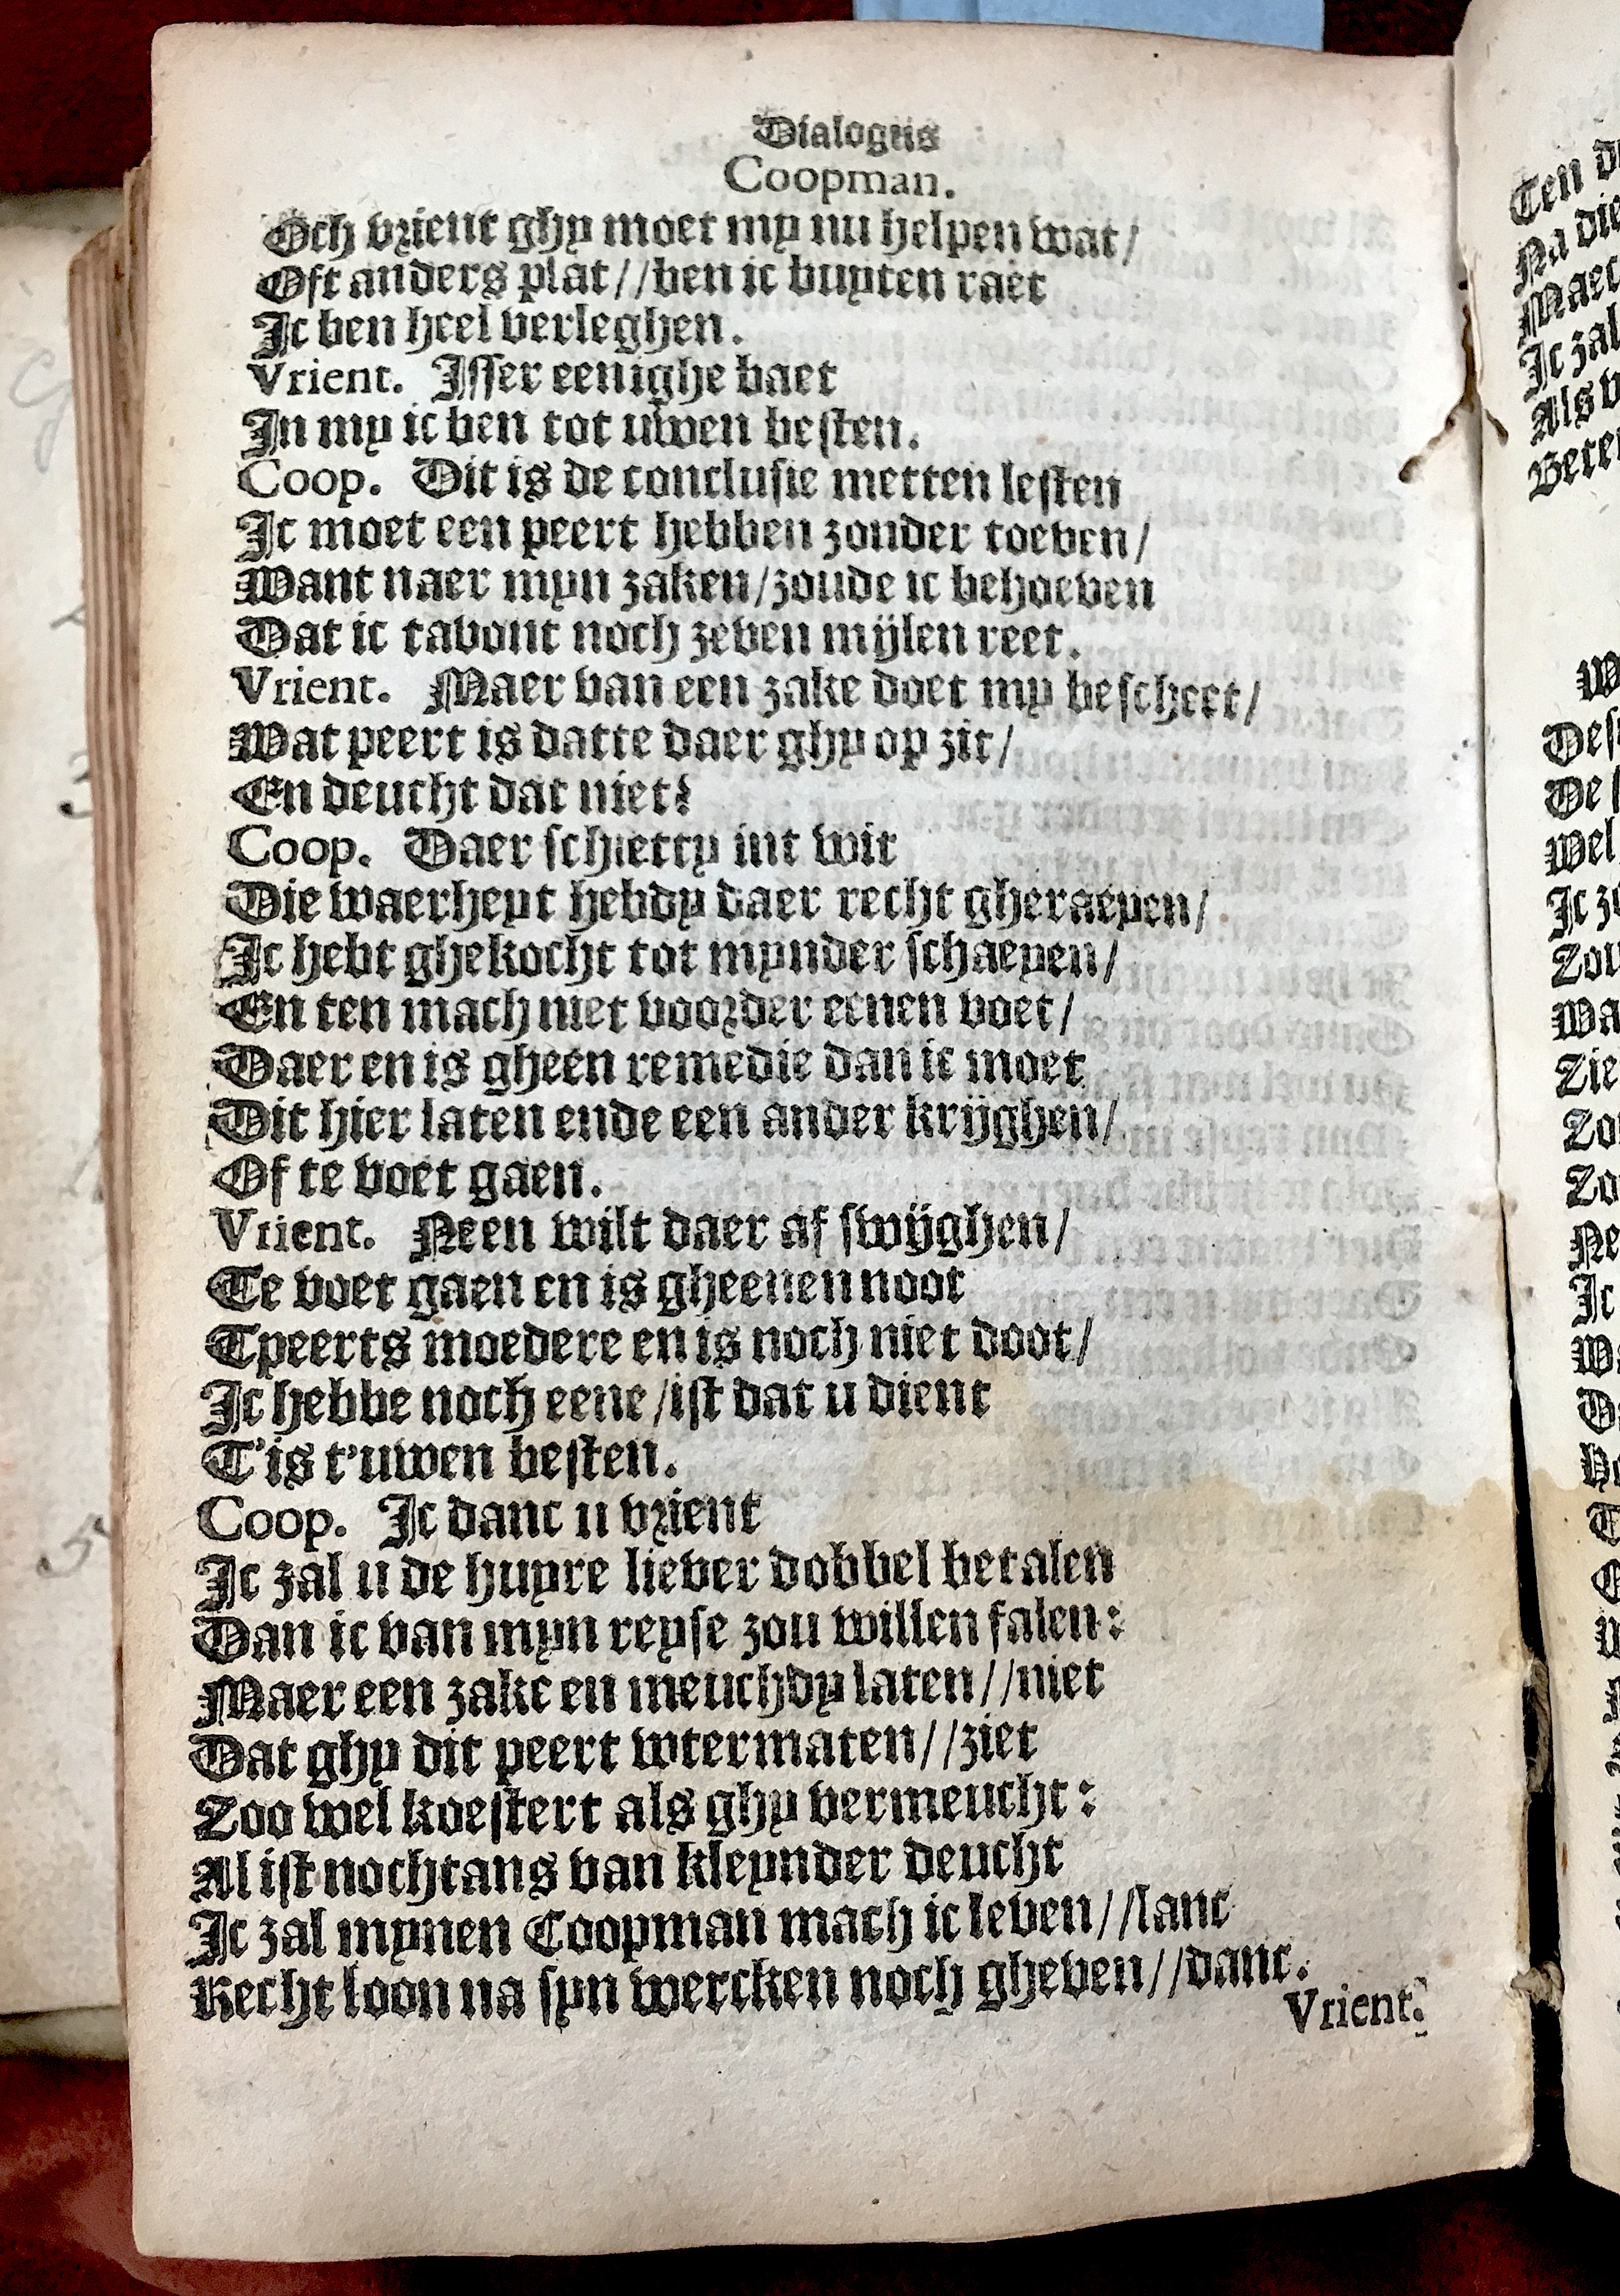 Dialogus
Coopman.
Och vrient ghy moet my nu helpen wat/
Oft anders plat//ben ic buyten raet
Ic ben heel verleghen.
Vrient. Isser eenighe baet
In my ic ben tot uwen besten.
Coop. Dit is de conclusie metten lesten
Ic moet een peert hebben zonder toeven/
Want naer myn zaken/zoude ic behoeven
Dat ic tavont noch zeven mijlen reet.
Vrient. Maer van een zake doet my bescheet/
Wat peert is datte daer ghy op zit/
En deucht dat niet?
Coop. Daer schietty int wit
Die waerheyt hebdy daer recht gheraeyen/
Ic hebt ghekocht tot mynder schaeyen/
En ten mach niet voorder eenen voet/
Daer en is gheen remedie dan ic moet
Dit hier laten ende een ander krijghen/
Of te voet gaen.
Vrient. Neen wilt daer af swijghen/
Te voet gaen en is gheenen noot
Tpeerts moedere en is noch niet doot/
Ic hebbe noch eene/ist dat u dient
T'is t'uwen besten.
Coop. Ic danc u vrient
Ic zal u de huyre liever dobbel betalen
Dan ic van myn reyse zou willen falen:
Maer een zake en meuchdy laten//niet
Dat ghy dit peert wtermaten//ziet
Zoo wel koestert als ghy vermeucht:
Al ist nochtans van kleynder deucht
Ic zal mynen Coopman mach ic leven//lanc
Recht loon na syn wercken noch gheven//danc.
Vrient.
Ten
Na die
Ic zal
Als
Wel